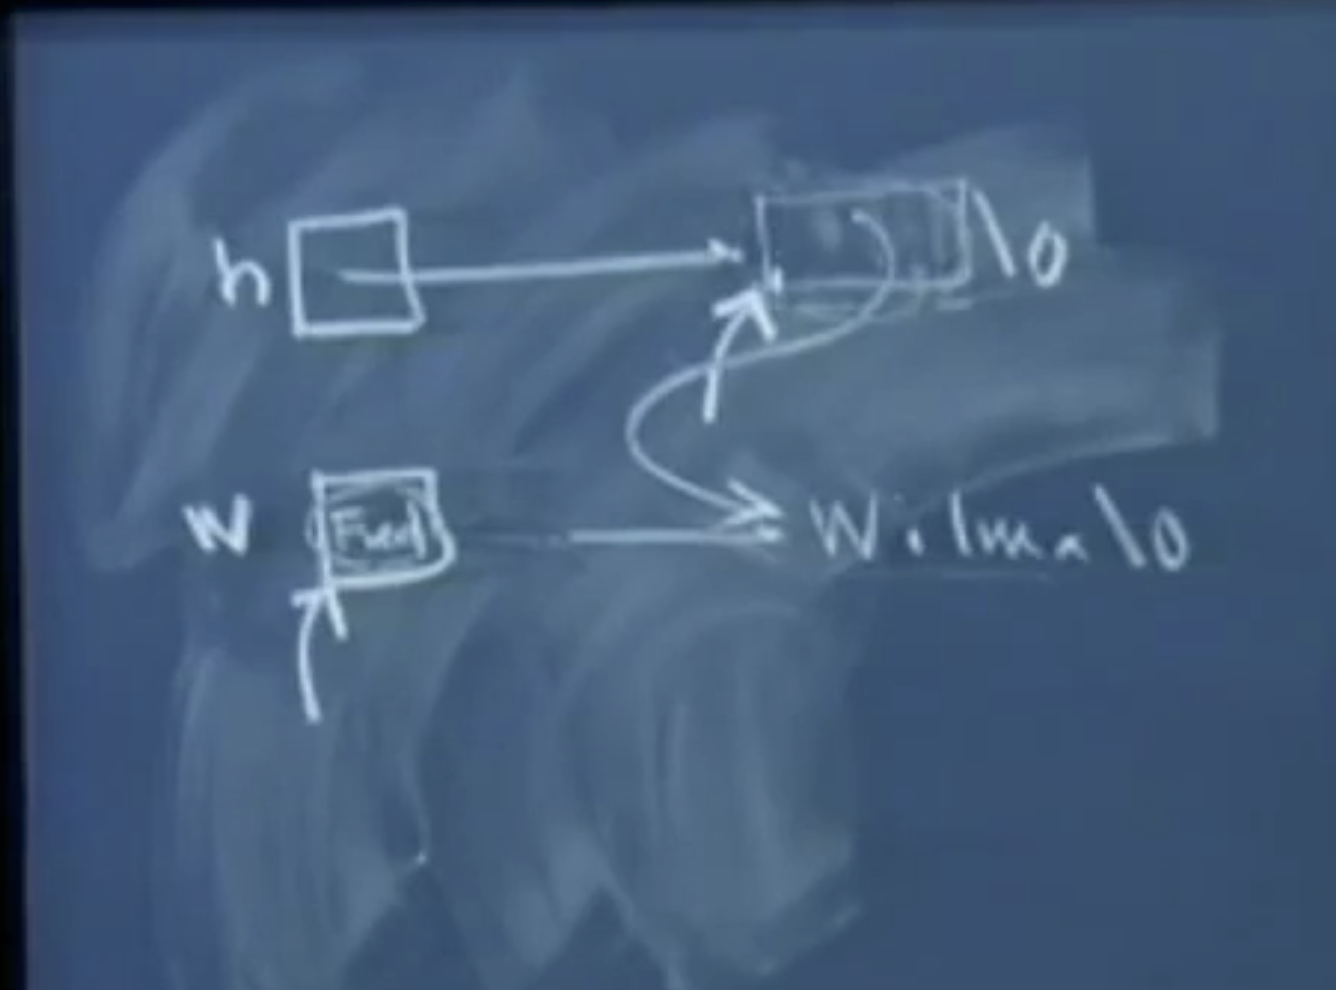 h \0
W Fred Wilma\0